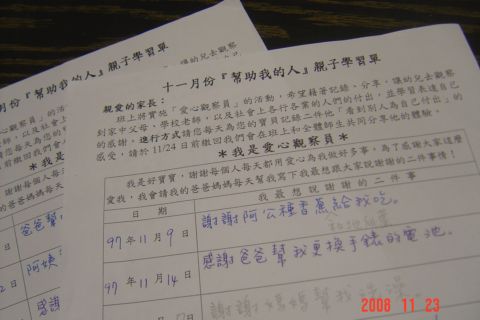 十一月份『幫助我的人』親子學習單
親愛的家長：
班上將實施「愛心觀察員」的活動，希望藉著記錄、分享，讓幼兒去觀察
到家中父母、學校老師，以及社會上各行各業的人們的付出，並學習表達自己
的感謝。進行方式請您每天為您的寶貝記錄二件他「看到別人為自己付出」的
感受，請於11/24日前繳回我們會在班上和全體師生共同分享他的體驗。
＊我是愛心觀察員＊
我是好寶寶，謝謝每個人每天都用愛心為我做好多事，為了感謝大家這麼
愛我，我會請我的爸爸媽媽每天幫我寫下我最想跟大家說謝謝的二件事情！
日期
我最想說謝謝的二件事
97年11月9日
謝謝阿公種香蕉給我吃。
97年11月14日
感謝爸爸幫我更換手錶的電池。
月份『幫助我的人』親子學習單
日
爸爸幫
日
阿姨
日
感謝
2008 11 23